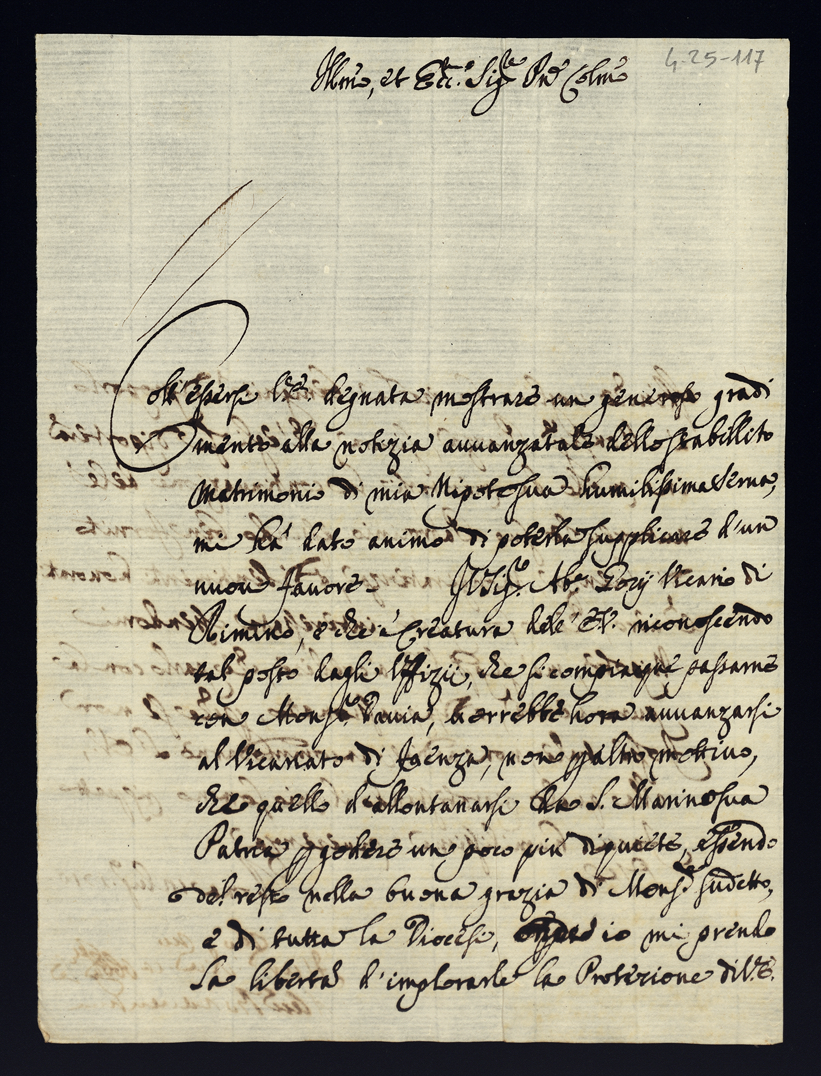 4-25-117
Illmo, et Ecc.mo Sig.re Pnē Colmo
Coll'essersi V.E. degnata mostrare un generoso gradi
mento alla notizia avvanzatale dello stabillito
Matrimonio di mia Nipote sua humilissima Serva,
mi hà dato animo di poterla supplicare d'un
nuovo favore. Il Sig.r Ab.e Gozij Vicario di
Rimino, e che è Creatura dell'E.V. riconoscendo
tal posto dagli Uffizii, che si compiacque passarne
con Mons.r Davia, vorrebbe hora avvanzarsi
al Vicariato di Faenza, non p altro mottivo,
che quello d'allontanarsi da S. Marino sua
Patria p godere un poco più di quiete, essendo
del resto nella buona grazia di Mons.r sudetto,
e di tutta la Diocesi, io mi prendo
la libertà d'implorarle la Protezione di V.E.